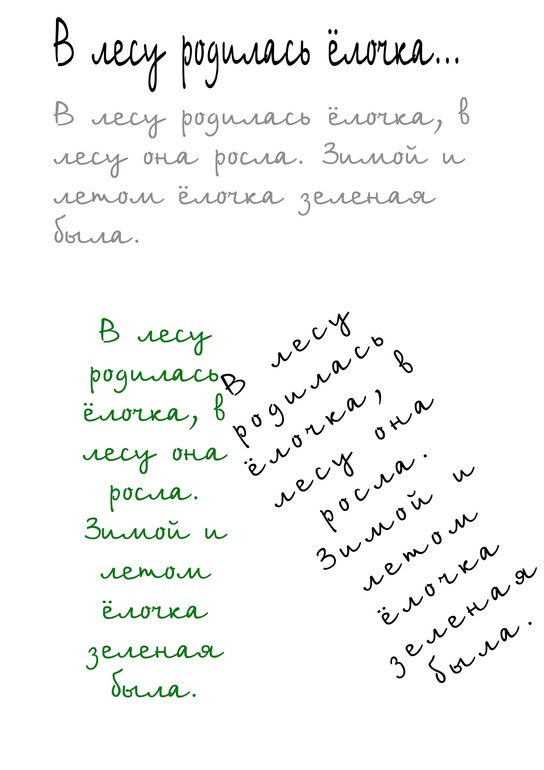 В лесу родилась ёлочка...
В лесу родилась ёлочка, в
лесу она росла. Зимой и
летом ёлочка зеленая
была.
В лесу
родилась
ёлочка, в
лесу она
росла.
Зимой и
летом
ёлочка
зеленая
была.
В лесу
родилась
ёлочка, в
лесу она
росла.
Зимой и
летом
ёлочка
зеленая
была.